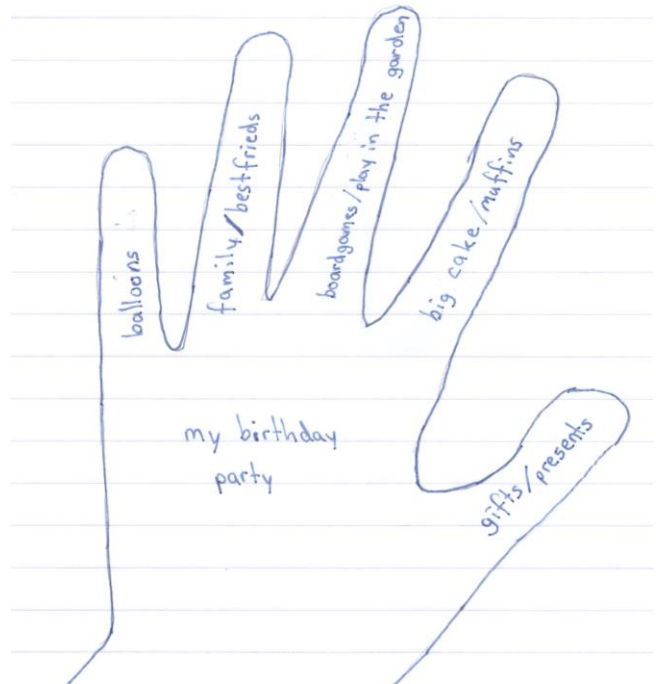 balloons
family/bestfrieds
boardgames/play in the garden
big cake/muffins
gifts/presents
my birthday
party